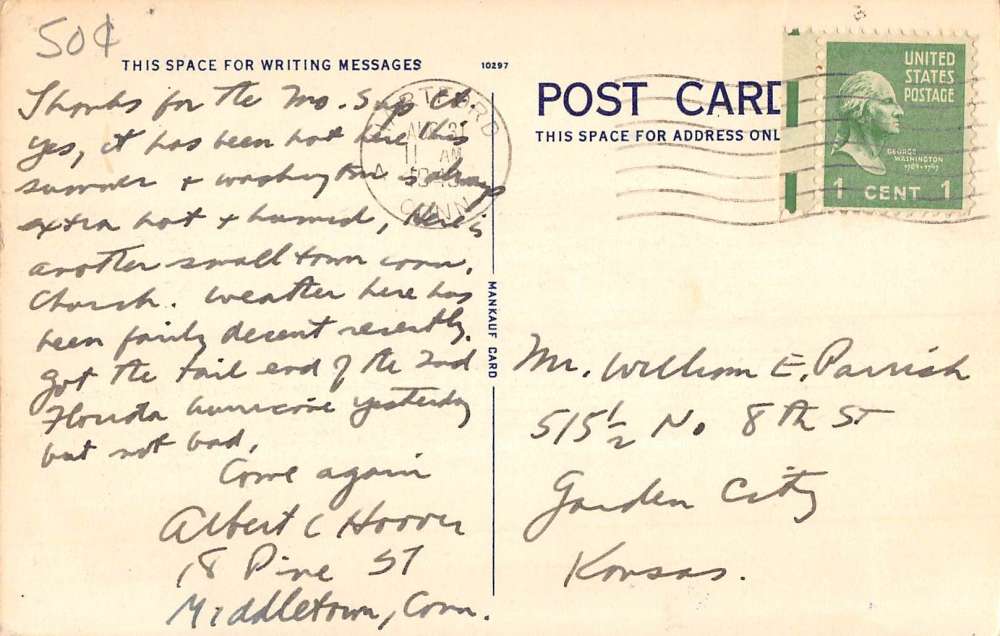 50¢
THIS SPACE FOR WRITING MESSAGES
10297
Thanks for the Mo. Sup Ct
yes, it has been hot here this
summer + washington is always
extra hot + humid, Here's
another small town conn.
Church. Weather here has
been fairly decent recently.
Got the tail end of the 2nd
Florida hurricane yesterday
but not bad.
Come again
Albert C Hoover
18 Pine ST
Middletown, Conn.
MANKAUF CARD
HARTFORD
AUG
11 AM
1949
CONN
POST CARD
THIS SPACE FOR ADDRESS ONL
UNITED
STATES
POSTAGE
GEORGE
WASHINGTON
1789-1797
1 CENT 1
Mr. William E. Parrish
515½ No 8th ST
Garden City
Kansas.